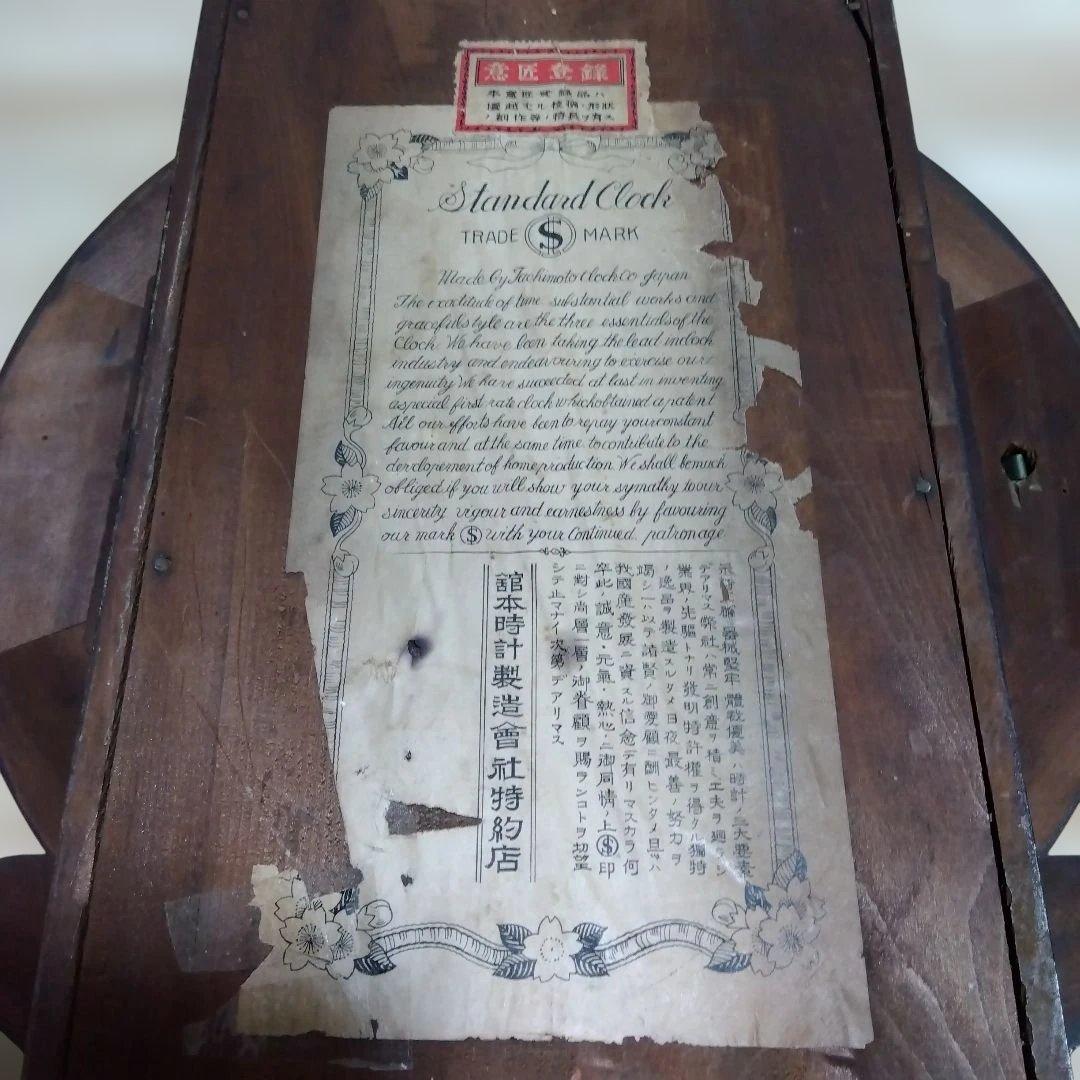 意匠登錄
本意匠登録品ハ
優越セル模樣・形狀
ノ創作等ノ特長ヲ有ス
Standard Clock
TRADE $ MARK
Made By Tachimoto Clock Co Japan
The exactitude of time substantial works and
graceful style are the three essentials of the
Clock. We have been taking the lead in clock
industry and endeavouring to exercise our
ingenuity We have succeeded at last in inventing
a special first rate clock which obtained a patent
All our efforts have been to repay your constant
favour and at the same time to contribute to the
derclopement of home production We shall be much
obliged if you will show your symathy to our
sincerity vigour and earnestness by favouring
our mark $ with your Continued patromage
器械堅牢 體裁優美ハ時計ノ三大要素
デアリマス弊社ハ常ニ創意ヲ積ミ工夫ヲ廻ラシ
業界ノ先驅トナリ發明特許權ヲ得タル獨特
ノ逸品ヲ製造スルタメ日夜最善ノ努力ヲ
竭シ一ハ以テ諸賢ノ御愛顧ニ酬ヒンタメ且ツハ
我國産發展ニ資スル信念デ有リマスカラ何
卒此ノ誠意・元氣・熱心ニ御同情ノ上$印
ニ對シ尚層一層ノ御眷顧ヲ賜ランコトヲ切望
シテ止マナイ次第デアリマス
舘本時計製造會社特約店